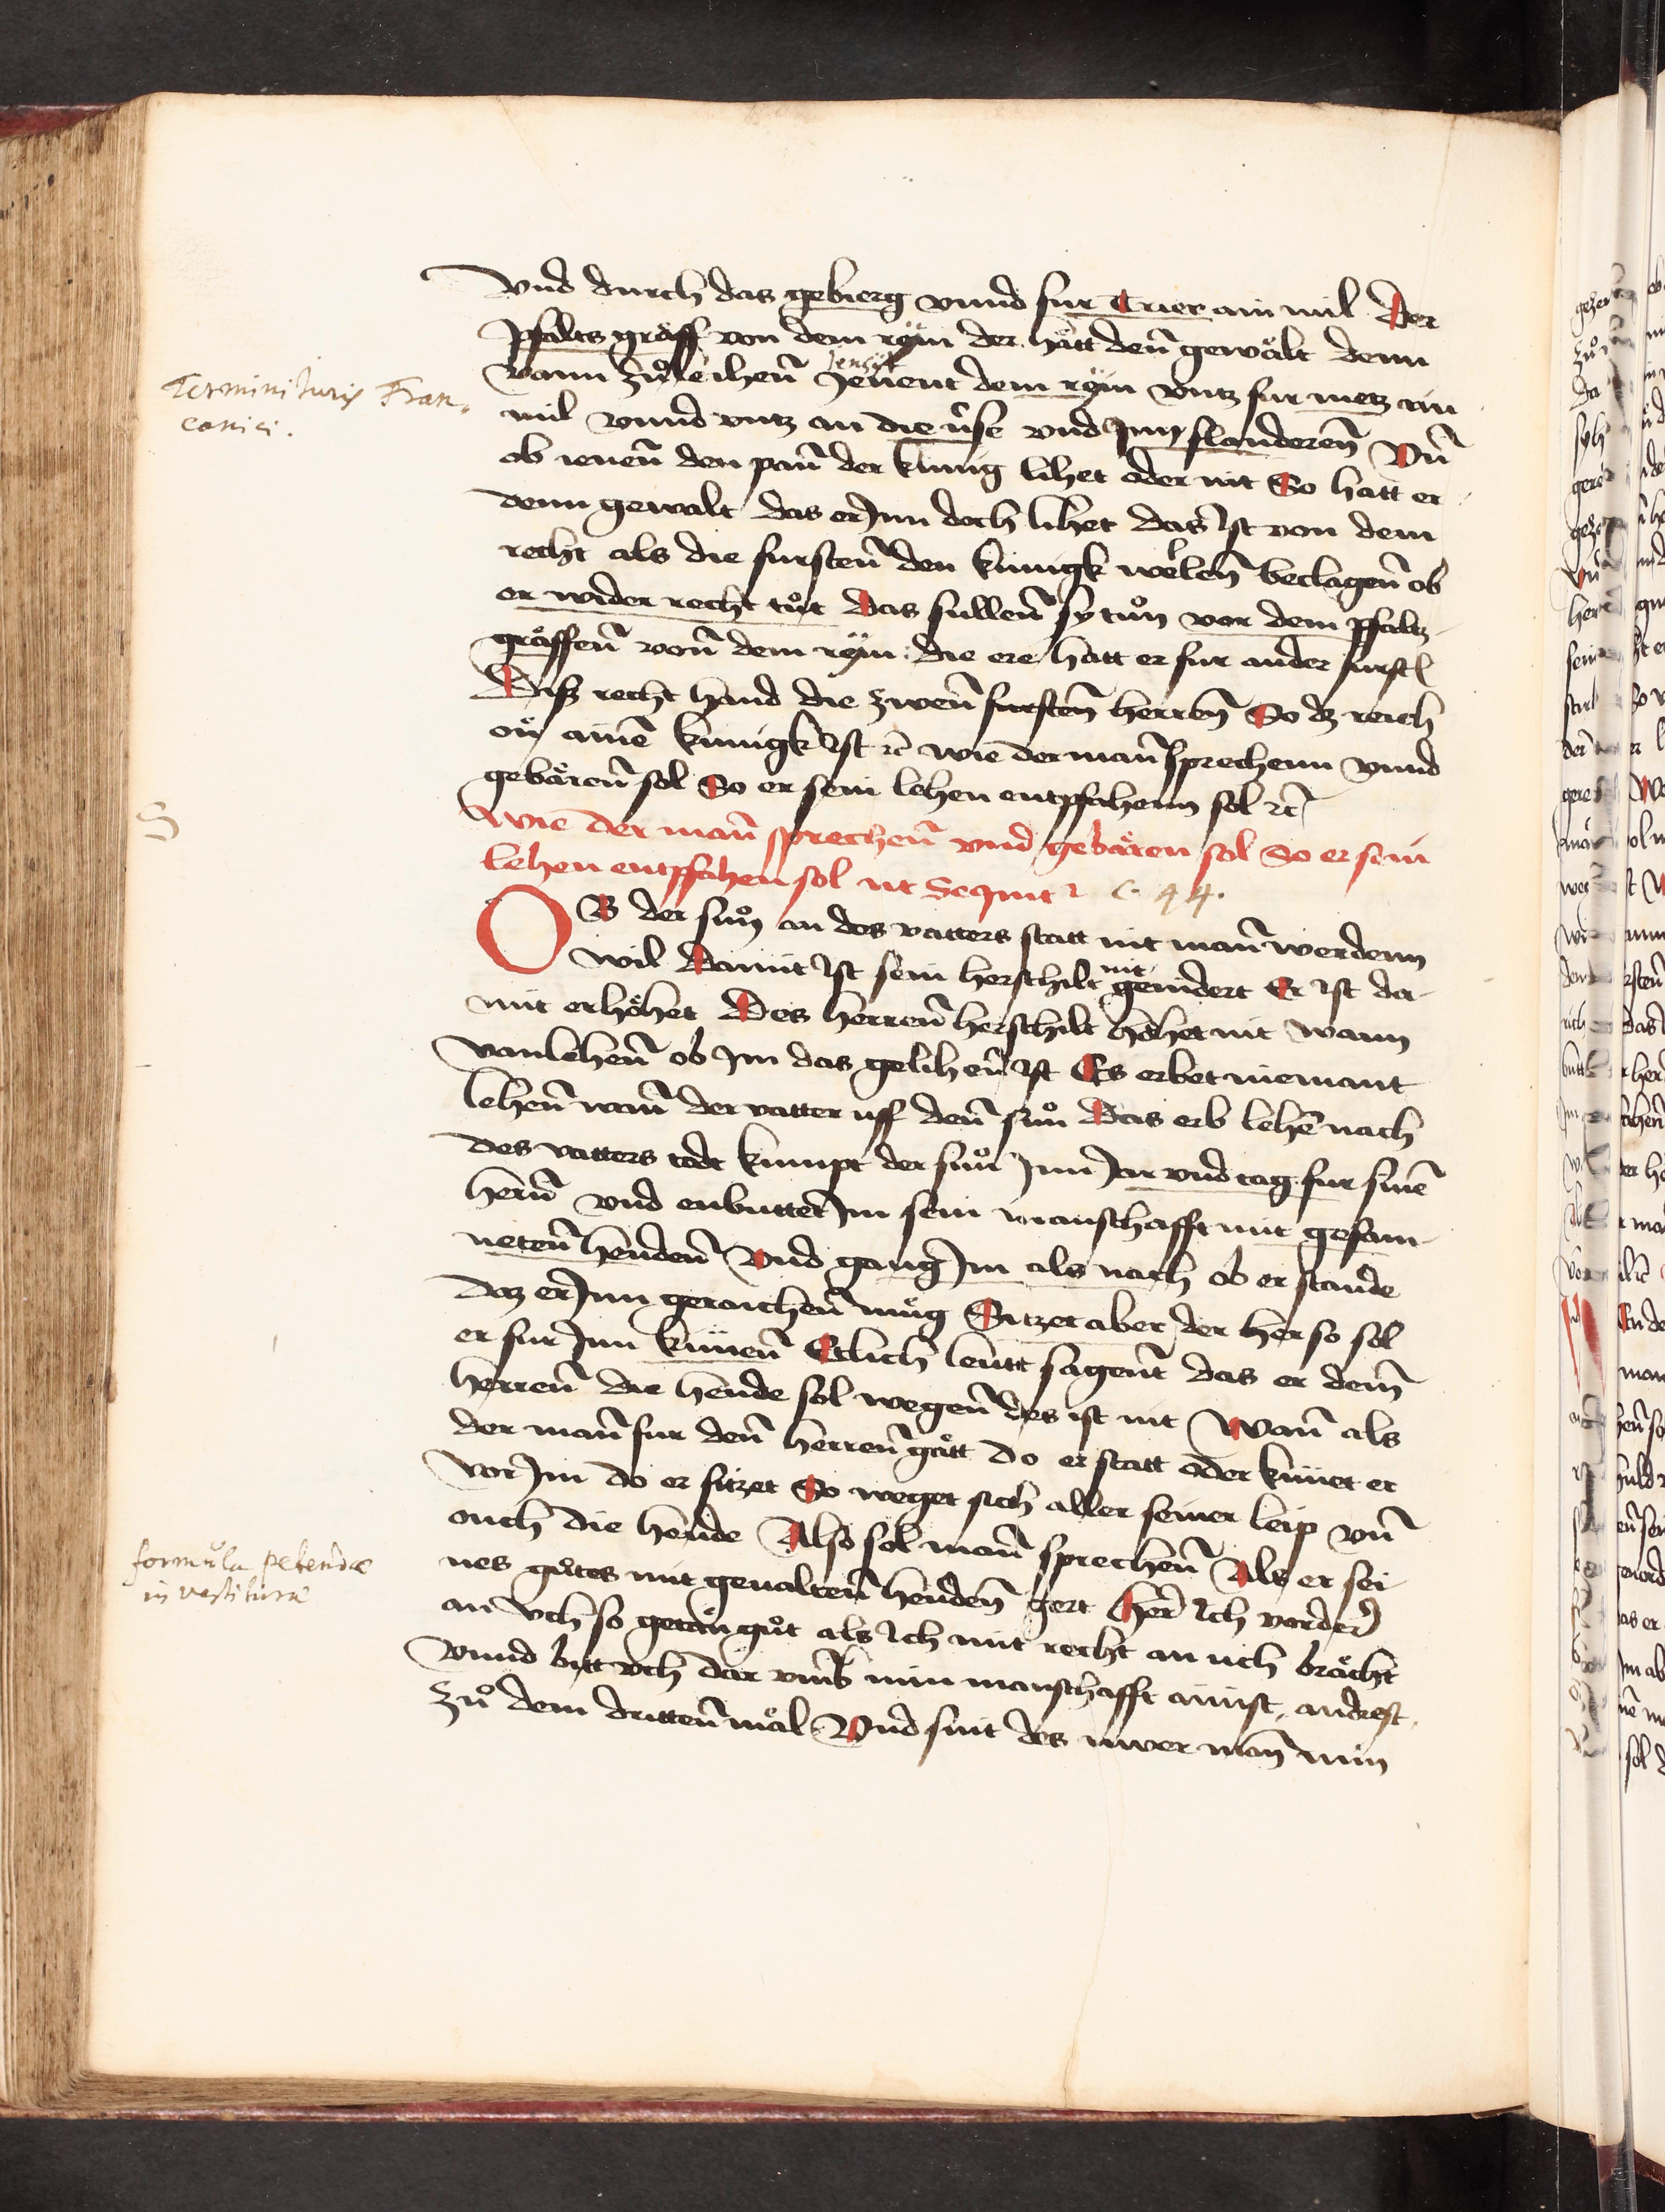 vnd durch das gebierg vnnd fur Trier ain mil Der
pfaltz gräff von dem reÿn der hätt deñ gewält denn
vann zu̇ leihenn̄ Jenent dem reÿn vntz fur metz ain
jensyt
mil vnnd vntz an die use vnd Jnn flanderenn̄ Vñ
ob ienenn̄ den pan̄ der kunig lihet oder nit So hatt er
denn gewalt das er Jnn doch lihet das ist von dem
recht als die furstenn̄ den kunigk welenn̄ beclagenn̄ ob
er wider recht tůt Das sullenn̄ sy tůn vor dem pfaltz
gräffenn̄ vonn̄ dem reÿn die ere hatt er fur ander furstl
Diß recht hand die zwenn̄ furstenn̄ herrenn̄ So dz reich
on ainē kunigk ist rc̄ wie der man̄ sprechenn vnnd
gebärenn̄ sol So er sein lehen entpfahenn sol rc̄
Wie der man̄ sprechenn̄ vnd gebären sol So er sein
lehen entpfahen sol vt Sequit2 c. 44.
OB der sun̊ an des vatters statt nit man̄ werdenn
wil Damit ist sein herschilt nit gemidert Er ist da-
mit erhöhet Des herrenn̄ herschilt höhet nit wann
vanlehenn̄ ob im das gelihenn̄ ist Es erbet niemant
lehenn̄ wan̄ der vatter uff denn̄ sun̊ Das erb lehē nach
des vatters todt kumpt der sun̊ Jnn Jar vnd tag fur sinē
hernn̄ vnd enbuttet Jm sein manschafft mit gesam-
netenn̄ hendenn̄ Vnd gang Jm als nach ob er stande
daz er Jnn geraichenn̄ müg Sitzet aber der her so sol
er fur Jnn knüenn̄ Etlich leütt sagent das er dem
herrenn̄ die hende sol wegenn̄ des ist nit Wan̄ als
der man̄ fur denn̄ herrenn̄ gätt do er statt oder knüet er
vor Jm do er sitzet So weget sich aller seiner leip vnn̄
ouch die hende Also sol man̄ sprechenn̄ Als er sei-
nes gůtes mit geualtenn̄ hendenn̄ gert Her̄ ich vorder
an vch so getän gůt als ich mit recht an uch brächt
vnnd bitt vch dar vmb min manschafft ainst, andrest,
zů dem drittenn̄ mäl Vnd sint des uwer man̄ min
Termini Juris Fran-
conici.
formula petendæ
investituræ